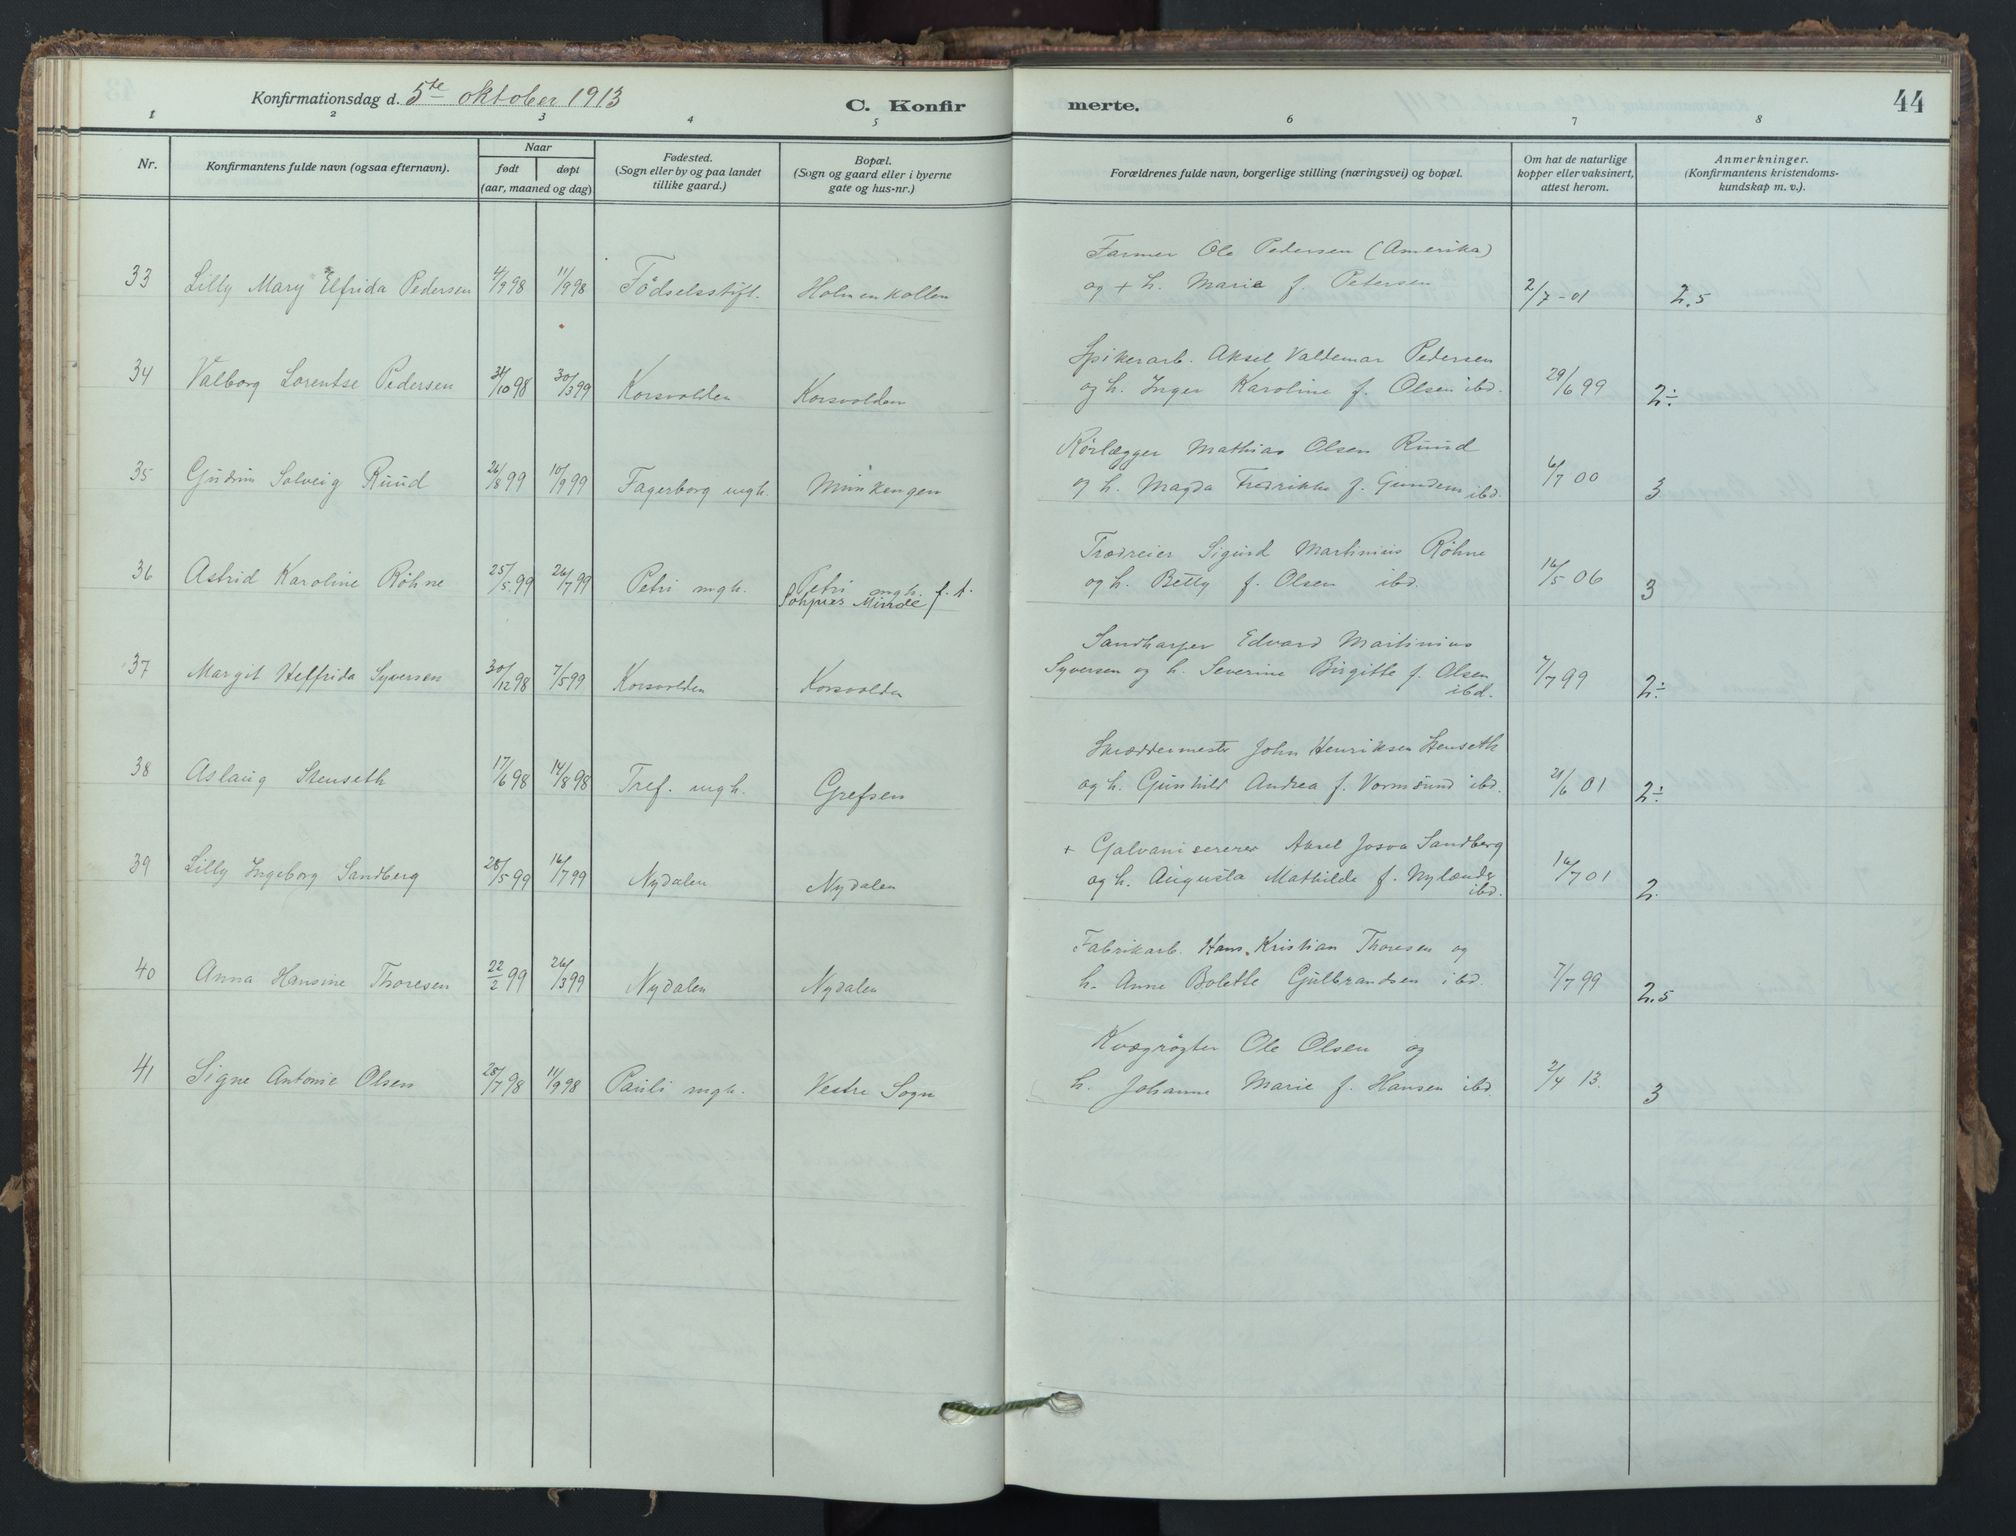 Konfirmationsdag d. 5te oktober 1913
C. Konfir
merte.
44
1 2 3 4 5 6 7 8
Nr.
Konfirmantens fulde navn (ogsaa efternavn).
Naar
født
døpt
(aar, maaned og dag)
Fødested.
(Sogn eller by og paa landet
tillike gaard.)
Bopæl.
(Sogn og gaard eller i byerne
gate og hus-nr.)
Forældrenes fulde navn, borgerlige stilling (næringsvei) og bopæl.
Om hat de naturlige
kopper eller vaksinert,
attest herom.
Anmerkninger.
(Konfirmantens kristendoms-
kundskap m. v.).
Farmer Ole Pedersen (Amerika)
33 Lilly Mary Elfrida Pedersen 4/9 98 11/9 98 Födselsstift. Holmenkollen og + h. Marie f. Petersen 2/7-01 2.5
Spikerarb. Aksel Valdemar Pedersen
34 Valborg Lorentse Pedersen 31/10 98 30/3 99 Korsvolden Korsvolden og h. Inger Karoline f. Olsen ibd. 29/6 99 2÷
Rörlægger Mathias Olsen Ruud
35 Gudrun Solveig Ruud 26/8 99 10/9 99 Fagerborg mgh. Munkengen og h. Magda Fredrikke f. Gundem ibd. 6/7 00 3
Trædreier Sigurd Martinius Röhne
36 Astrid Karoline Röhne 25/5 99 26/7 99 Petri mgh. Petri mgh. f. t.
Sohpies Minde og h. Betty f. Olsen ibd. 16/5 06 3
Sandharper Edvard Martinius
37 Margit Helfrida Syversen 30/12 98 7/5 99 Korsvolden Korsvolden Syversen og h. Severine Birgitte f. Olsen
ibd. 7/7 99 2÷
Skræddermester John Henriksen Stenseth
38 Aslaug Stenseth 17/6 98 14/8 98 Tref. mgh. Grefsen og h. Gunhild Andrea f. Vormsund ibd. 21/6 01 2÷
+ Galvaniserer Axel Josva Sandberg
39 Lilly Ingeborg Sandberg 28/5 99 16/7 99 Nydalen Nydalen og h. Augusta Mathilde f. Nylænder
ibd. 16/7 01 2.
Fabrikarb. Hans Kristian Thoresen og
40 Anna Hansine Thoresen 22/2 99 26/3 99 Nydalen Nydalen h. Anne Bolette Gulbrandsen ibd. 7/7 99 2.5
Kvægrögter Ole Olsen og
41 Signe Antonie Olsen 28/7 98 11/9 98 Pauli mgh. Vestre Sogn h. Johanne Marie f. Hansen ibd. 2/4 13. 3